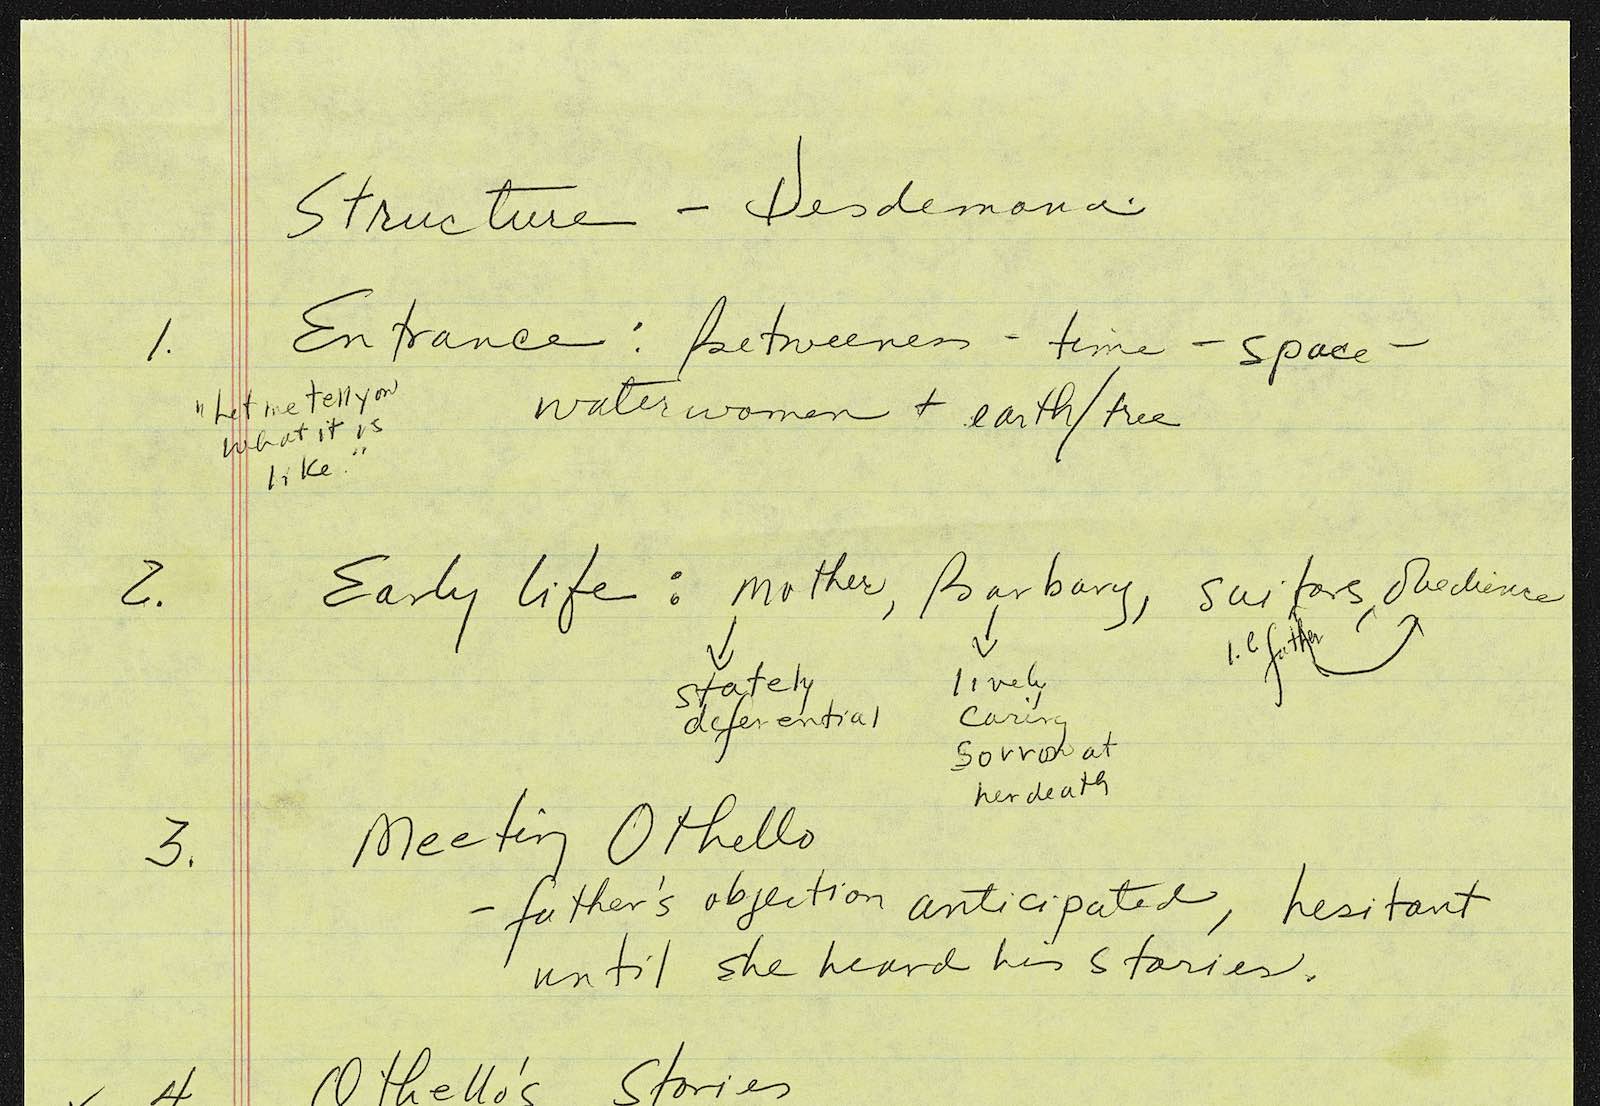 Structure - Desdemona
1. Entrance: betweeness - time - space -
water women + earth/tree
"Let me tell you
what it is
like."
2. Early life: mother, Barbary, suitors, obedience
i.e father
stately
deferential
lively
caring
sorrow at
her death
3. Meeting Othello
- father's objection anticipated, hesitant
until she heard his stories.
4. Othello's Stories